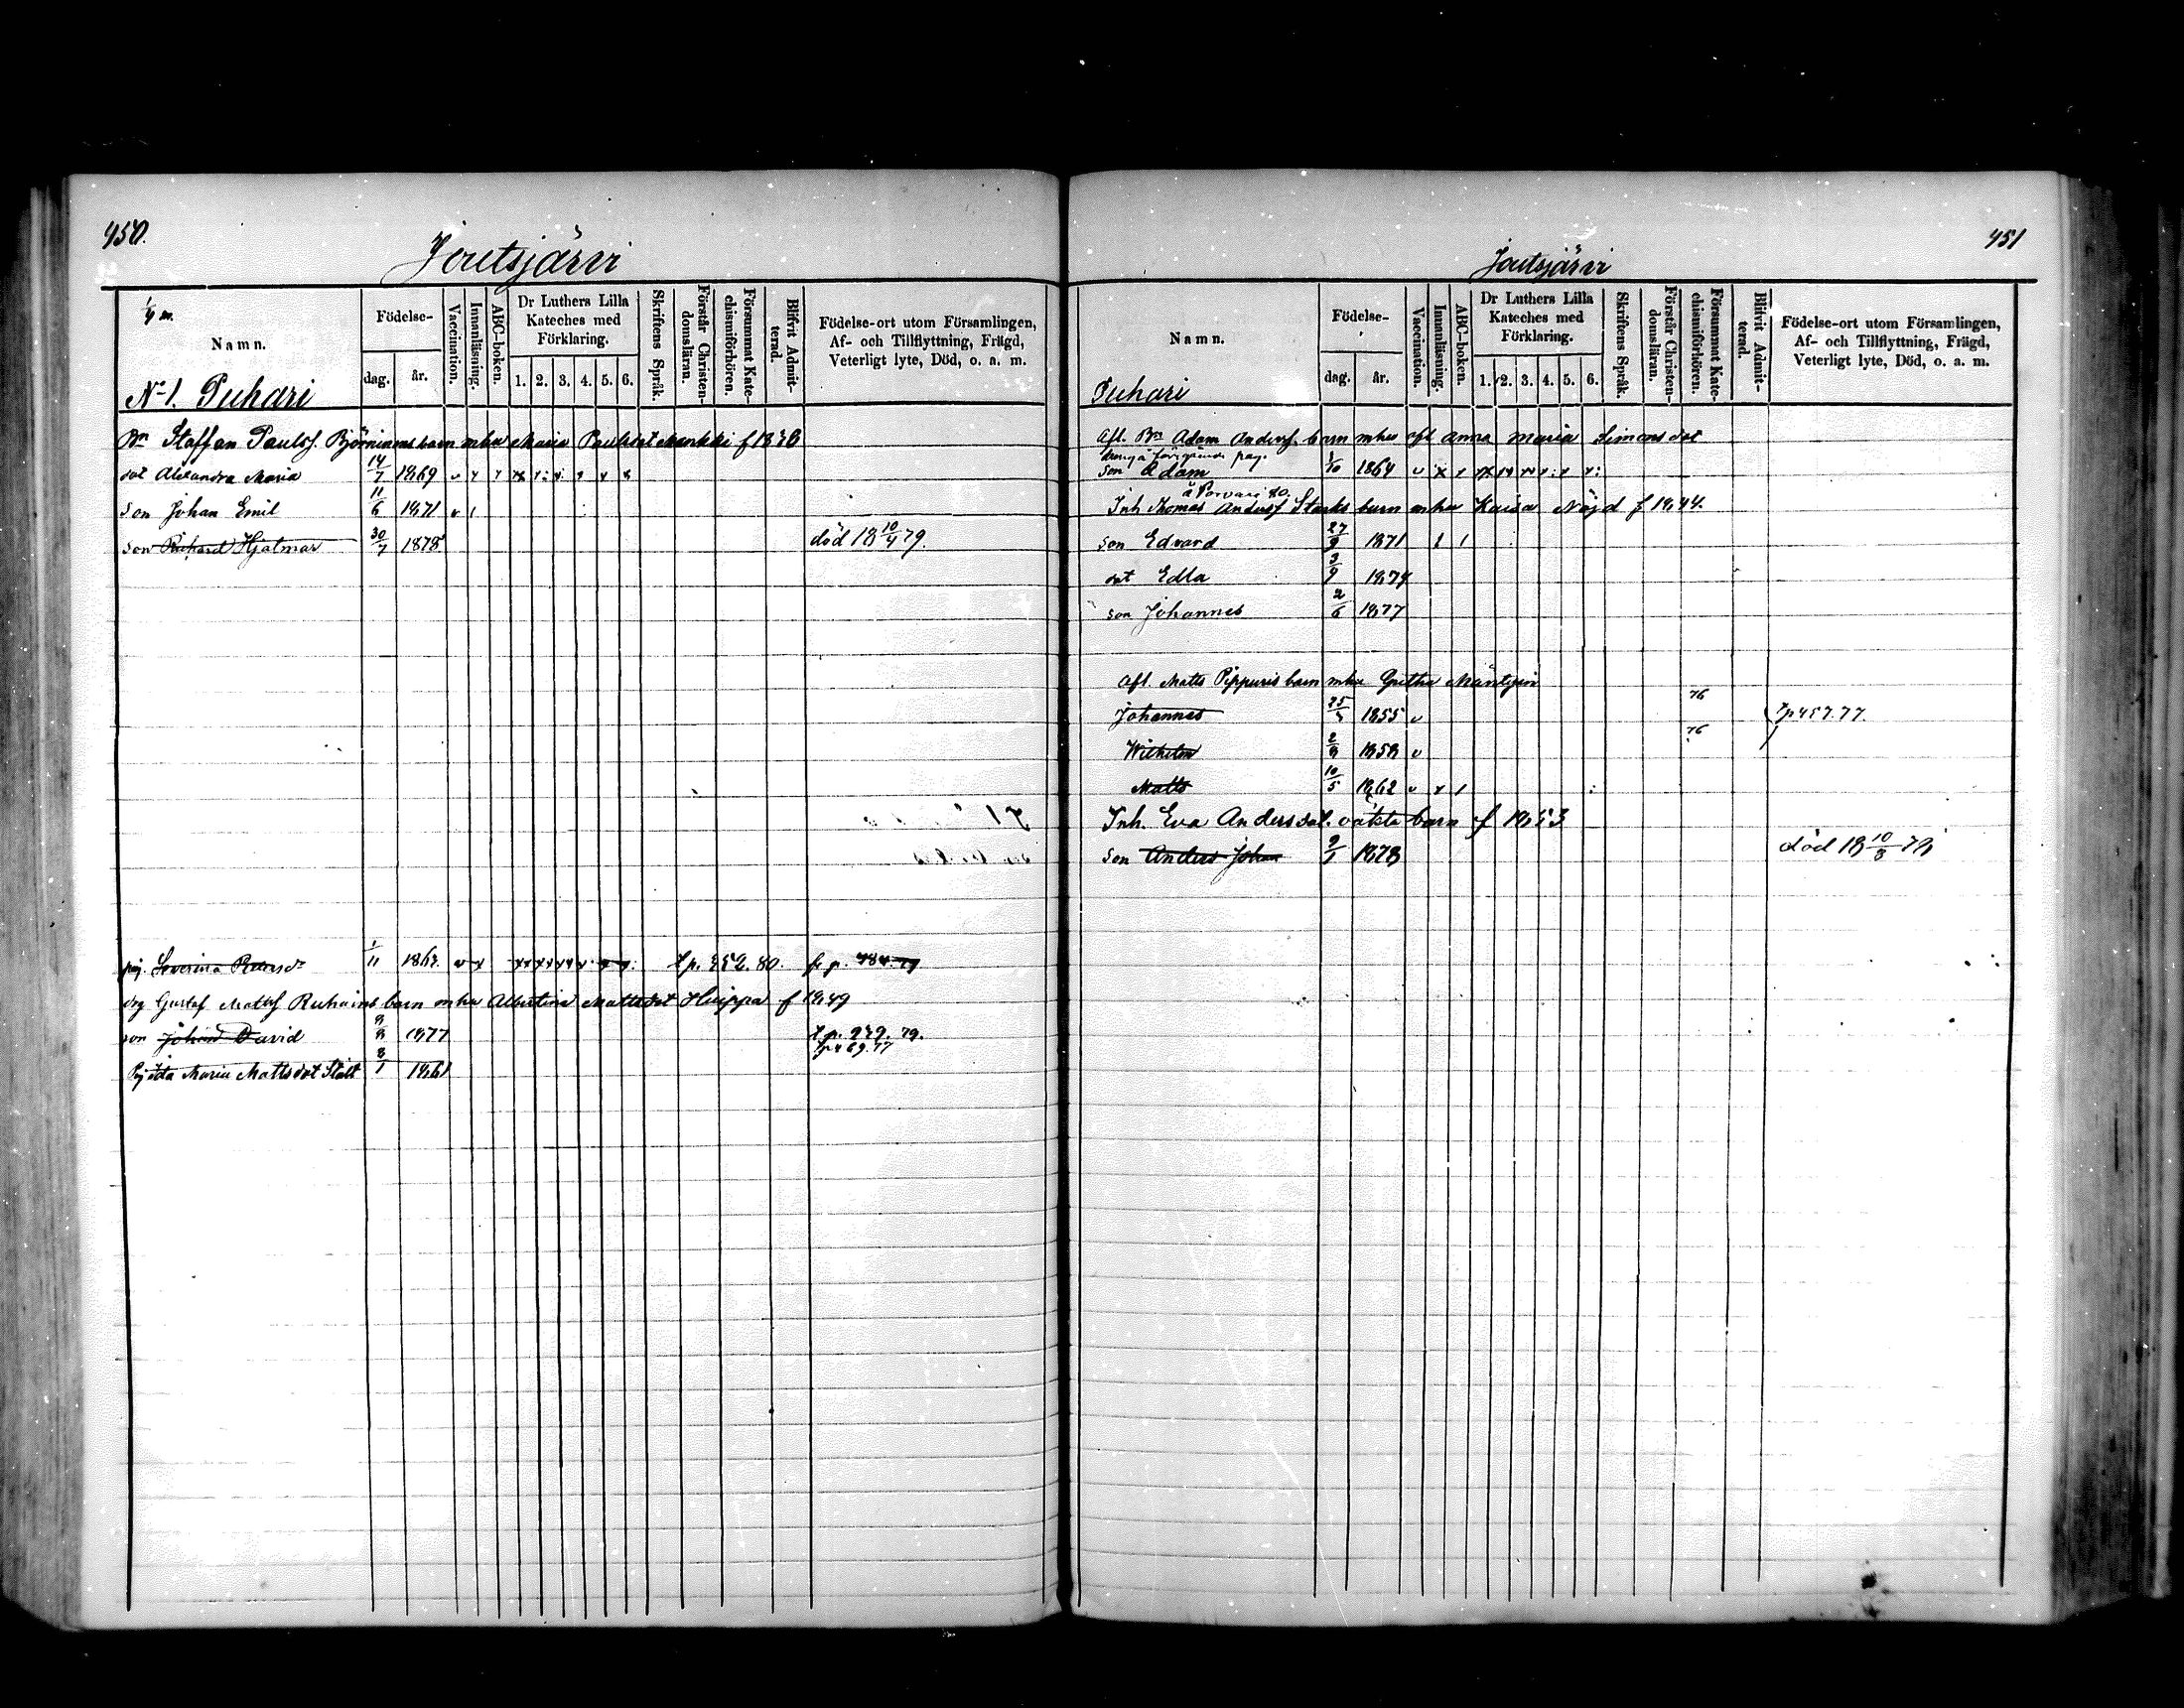 450.
Joutsjärvi
Namn.
Födelse-
dag.
år.
Vaccination.
Innanläsning.
ABC-boken.
Dr Luthers Lilla
Kateches med
Förklaring.
1. 2. 3. 4. 5. 6.
Skriftens Språk.
Förstår Christen-
domsläran.
Försummat Kate-
chismiförhören.
Blifvit Admit-
terad.
Födelse-ort utom Församlingen,
Af- och Tillflyttning, Frägd,
Veterligt lyte, Död, o. a. m.
No 1. Puhari
Bn Staffan Paulsf. Björninens barn mhu Maria
dot Alexandra Maria 14/7 1869
son Johan Emil 11/6 1871
son Richard Hjalmar 30/7 1878 död 18 10/4 79.
pig. Severina 1/11 1863 80. fr p.
drg Gustaf Mattsf barn mhu Albertina Mattsdot Huippa f 1849
son Johan David 8/8 1877 79.
Pig Ida Maria Mattsdot Stålt 8/1 1861
451
Joutsjärvi
Namn.
Födelse-
dag.
år.
Vaccination.
Innanläsning.
ABC-boken.
Dr Luthers Lilla
Kateches med
Förklaring.
1. 2. 3. 4. 5. 6.
Skriftens Språk.
Förstår Christen-
domsläran.
Försummat Kate-
chismiförhören.
Blifvit Admit-
terad.
Födelse-ort utom Församlingen,
Af- och Tillflyttning, Frägd,
Veterligt lyte, Död, o. a. m.
Puhari
Afl. Bn Adam Andersf. barn mhu afl Anna Maria Simonsdot
föregående pag.
son Adam 1/10 1864
å Porvari 80.
Inh Thomas Andersf Starks barn mhu Kaisa Nöjd f 1844.
son Edvard 27/9 1871
dot Edla 3/9 1874
son Johannes 2/6 1877
Afl. Matts Pippuris barn mhu Gretha Mäntynen
76
Johannes 1855 457.77.
76
Wilhelm 2/8 1858
Matts 10/5 1862
Inh. Eva Andersdot. oäkta barn f 1853
son Anders Johan 9/1 1878 död 18 10/8 78